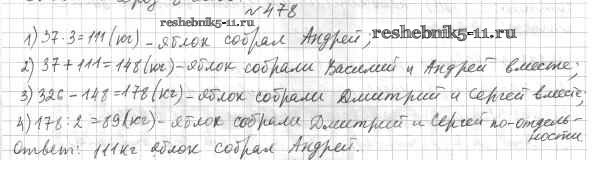 №478
reshebnik5-11.ru
1) 37·3=111(кг)-яблок собрал Андрей;
reshebnik5-11.ru
2) 37+111=148(кг)-яблок собрали Василий и Андрей вместе;
3) 326-148=178(кг)-яблок собрали Дмитрий и Сергей вместе;
4) 178:2=89(кг)-яблок собрали Дмитрий и Сергей по-отдель-
ности
Ответ: 111кг яблок собрал Андрей.